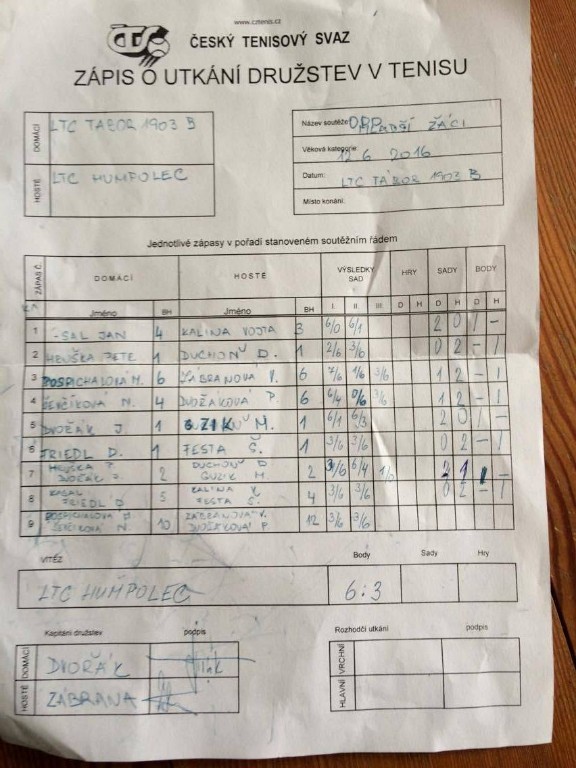 www.cztenis.cz
ČESKÝ TENISOVÝ SVAZ
ZÁPIS O UTKÁNÍ DRUŽSTEV V TENISU
DOMÁCÍ LTC TÁBOR 1903 B
HOSTÉ LTC HUMPOLEC
Název soutěže: MLADŠÍ ŽÁCI
Věková kategorie: 12 6 2016
Datum: LTC TÁBOR 1903 B
Místo konání:
Jednotlivé zápasy v pořadí stanoveném soutěžním řádem
ZÁPAS Č. DOMÁCÍ HOSTÉ VÝSLEDKY SAD HRY SADY BODY
Jméno BH Jméno BH I. II. III. D H D H D H
1 JAN 4 KALINA VOJTA 3 6/0 6/1 2 0 1 -
2 HRUŠKA PETE 1 DUCHOŇ D. 1 2/6 3/6 0 2 - 1
3 POSPÍCHALOVÁ M. 6 ZÁBRANOVÁ V. 6 7/6 1/6 3/6 1 2 - 1
4 ŠENČÍKOVÁ N. 4 DVOŘÁKOVÁ P. 6 6/4 0/6 3/6 1 2 - 1
5 DVOŘÁK J. 1 M. 1 6/1 6/3 2 0 1 -
6 FRIEDL D. 1 FESTA Š. 1 3/6 3/6 0 2 - 1
7 HRUŠKA P. DVOŘÁK J. 2 DUCHOŇ D GUZIK M 2 6/4 2 1 1 -
8 FRIEDL D 5 KALINA V. FESTA Š. 4 3/6 3/6 0 2 - 1
9 POSPÍCHALOVÁ M ŠENČÍKOVÁ N. 10 ZÁBRANOVÁ V. DVOŘÁKOVÁ P. 12 3/6 3/6
VÍTĚZ Body Sady Hry
LTC HUMPOLEC 6:3
Kapitáni družstev podpis Rozhodčí utkání podpis
DOMÁCÍ DVOŘÁK VRCHNÍ
HOSTÉ ZÁBRANA HLAVNÍ